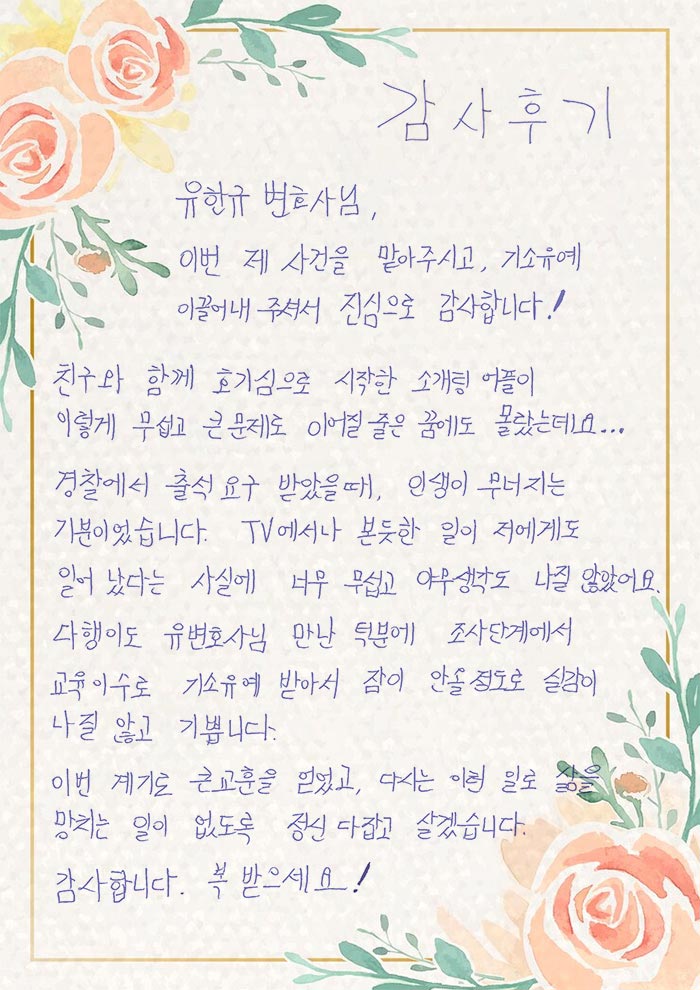 감사후기
유한규 변호사님,
이번 제 사건을 맡아주시고, 기소유예
이끌어내 주셔서 진심으로 감사합니다!
친구와 함께 호기심으로 시작한 소개팅 어플이
이렇게 무섭고 큰 문제로 이어질 줄은 꿈에도 몰랐는데요...
경찰에서 출석 요구 받았을때, 인생이 무너지는
기분이었습니다. TV에서나 본듯한 일이 저에게도
일어 났다는 사실에 너무 무섭고 아무생각도 나질 않았어요.
다행이도 유변호사님 만난 덕분에 조사단계에서
교육이수로 기소유예 받아서 잠이 안올정도로 실감이
나질 않고 기쁩니다.
이번 계기로 큰교훈을 얻었고, 다시는 이런 일로 삶을
망치는 일이 없도록 정신 다잡고 살겠습니다.
감사합니다. 복 받으세요!